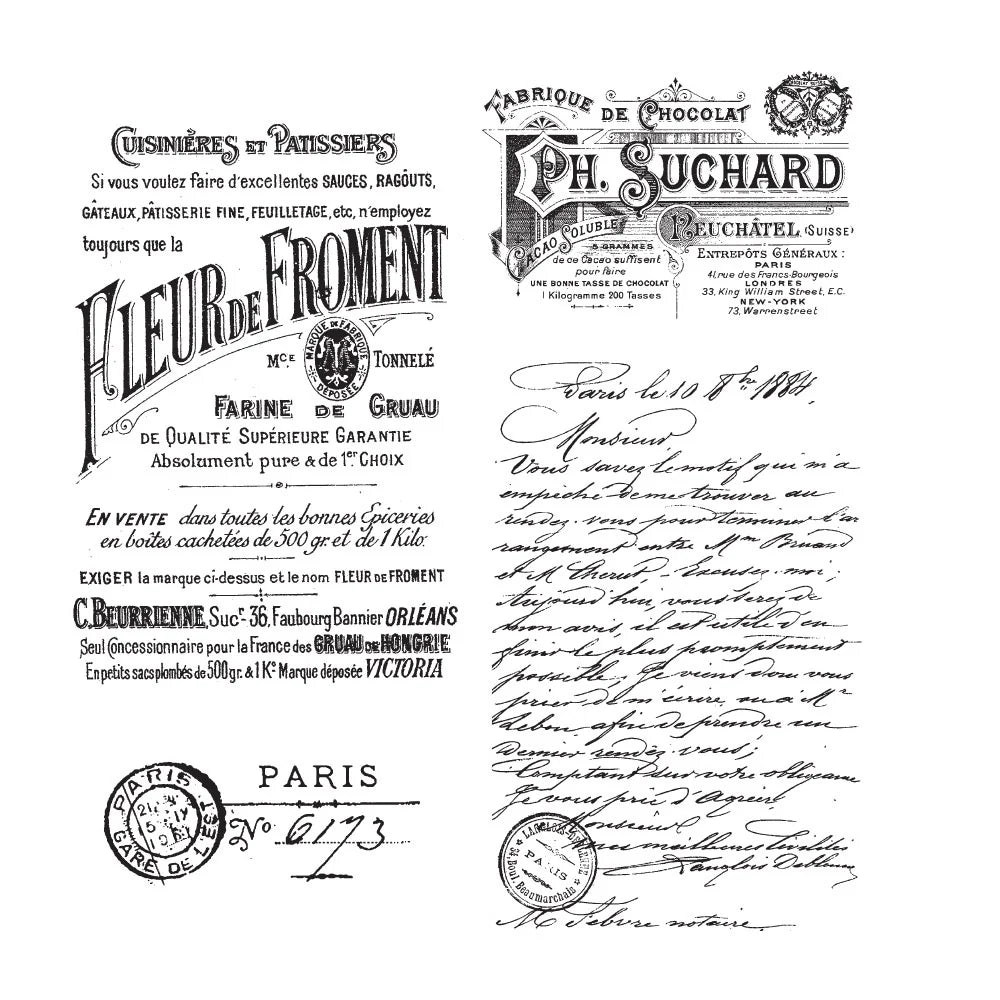 CUISINIÈRES ET PATISSIERS
Si vous voulez faire d'excellentes SAUCES, RAGÔUTS,
GÂTEAUX, PÂTISSERIE FINE, FEUILLETAGE, etc, n'employez
toujours que la
FLEUR DE FROMENT
MARQUE DE FABRIQUE
DÉPOSÉE
Mce TONNELÉ
FARINE DE GRUAU
DE QUALITÉ SUPÉRIEURE GARANTIE
Absolument pure & de 1er CHOIX
EN VENTE dans toutes les bonnes Épiceries
en boîtes cachetées de 500 gr. et de 1 Kilo.
EXIGER la marque ci-dessus et le nom FLEUR DE FROMENT
C. BEURRIENNE, Sucr- 36, Faubourg Bannier ORLÉANS
Seul Concessionnaire pour la France des GRUAU DE HONGRIE
En petits sacs plombés de 500 gr. & 1 Ko Marque déposée VICTORIA
PARIS
GARE DE L'EST
PARIS
No 6173
FABRIQUE DE CHOCOLAT
PH. SUCHARD
NEUCHÂTEL (SUISSE)
CACAO SOLUBLE
5 GRAMMES
de ce Cacao suffisent
pour faire
UNE BONNE TASSE DE CHOCOLAT
1 Kilogramme 200 Tasses
ENTREPÔTS GÉNÉRAUX :
PARIS
41, rue des Francs-Bourgeois
LONDRES
33, King William Street, E.C.
NEW-YORK
73, Warrenstreet
Paris le 10 8bre 1884.
Monsieur
Vous savez le motif qui m'a
empêché de me trouver au
rendez-vous pour terminer l'ar
rangement entre Mme Bruand
et M Cherut, - Excusez-moi;
Aujourd'hui, vous serez de
mon avis, il est utile d'en
finir le plus promptement
possible; Je viens donc vous
prier de m'écrire, ou à Mr
Lebon afin de prendre un
Dernier rendez-vous;
Comptant sur votre obligeance
Je vous prie d'Agréer,
Monsieur
mes meilleures Civilités
Langlois
PARIS
54 Boul. Beaumarchais
M Lebvre notaire